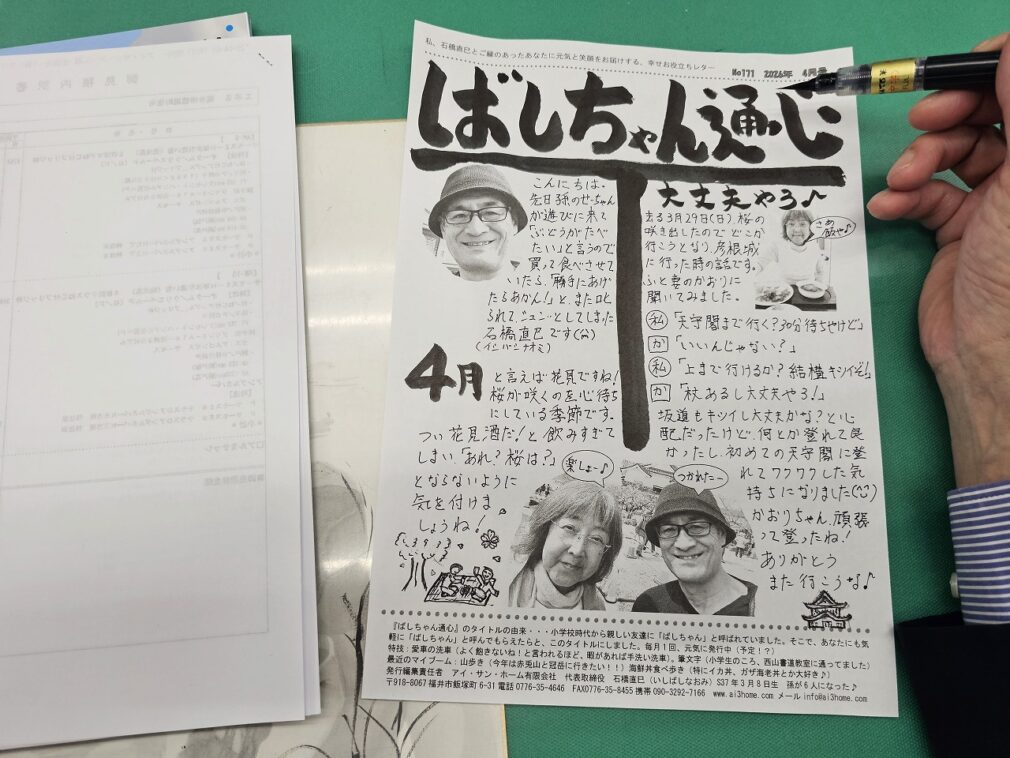 私、石橋直巳とご縁のあったあなたに元気と笑顔をお届けする、幸せお役立ちレター
No171 2026年 4月号
ばしちゃん通心
こんにちは。
先日孫のぜーちゃん
が遊びに来て
「ぶどうがたべ
たい」と言うので
買って食べさせて
いたら、「勝手にあげ
たらあかん!」と、また叱
られて、シュン…としてしまた
石橋直巳です(^^)
(イシバシナオミ)
4月
と言えば花見ですね!
桜が咲くの
にしている季節です。
つい花見酒だ!と飲みすぎて
しまい、「あれ?桜は?」
とならないように
気を付けま
しょうね!
大丈夫やろ♪
去る3月29日(日)桜の
咲き出したので どこか
行こうとなり、彦根城
に行った時の話です。
ふと妻のかおりに
聞いてみました。
さあ
飯や♪
私「天守閣まで行く?30分待ちやけど」
か「いいんじゃない?」
私「上まで行けるか?結構キツイぞ!」
か「杖あるし大丈夫やろ!」
坂道もキツイし大丈夫かな?と心
配だったけど、何とか登れて良
かったし、初めての天守閣に登
れてワクワクした気
持ちになりました(^^)
かおりちゃん、頑張
って登ったね!
ありがとう
また行こうな♪
楽しぇ〜♪
つかれた〜
『ばしちゃん通心』のタイトルの由来・・・小学校時代から親しい友達に「ばしちゃん」と呼ばれていました。そこで、あなたにも気
軽に「ばしちゃん」と呼んでもらえたらと、このタイトルにしました。毎月1回、元気に発行中(予定!?)
特技:愛車の洗車(よく飽きないね!と言われるほど、暇があれば手洗い洗車)。筆文字(小学生のころ、西山書道教室に通ってました)
最近のマイブーム:山歩き(今年は赤兎山と冠岳に行きたい!!)海鮮丼食べ歩き(特にイカ丼、ガザ海老丼とか大好き♪)
発行編集責任者 アイ・サン・ホーム有限会社 代表取締役 石橋直巳(いしばしなおみ)S37年3月8日生 孫が6人になった♪
〒918-8067福井市飯塚町6-31電話0776-35-4646 FAX0776-35-8455携帯090-3292-7166 www.ai3home.com メールinfo@ai3home.com